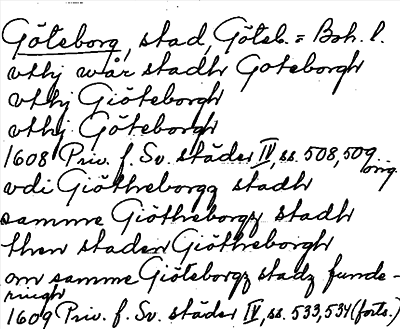 Göteborg, stad, Göteb. = Boh. l.
vthj wår stadh Goteborgh
vthj Giöteborgh
vthj Göteborgh
1608 Priv. f. Sv. städer IV, ss. 508, 509 orig.
vdi Giötheborgz stadh
samme Giötheborgz stadh
then staden Giötheborgh
om samme Giöteborgz stadz funde-
ringh
1609 Priv. f. Sv. städer IV, ss. 533, 534 (forts.)